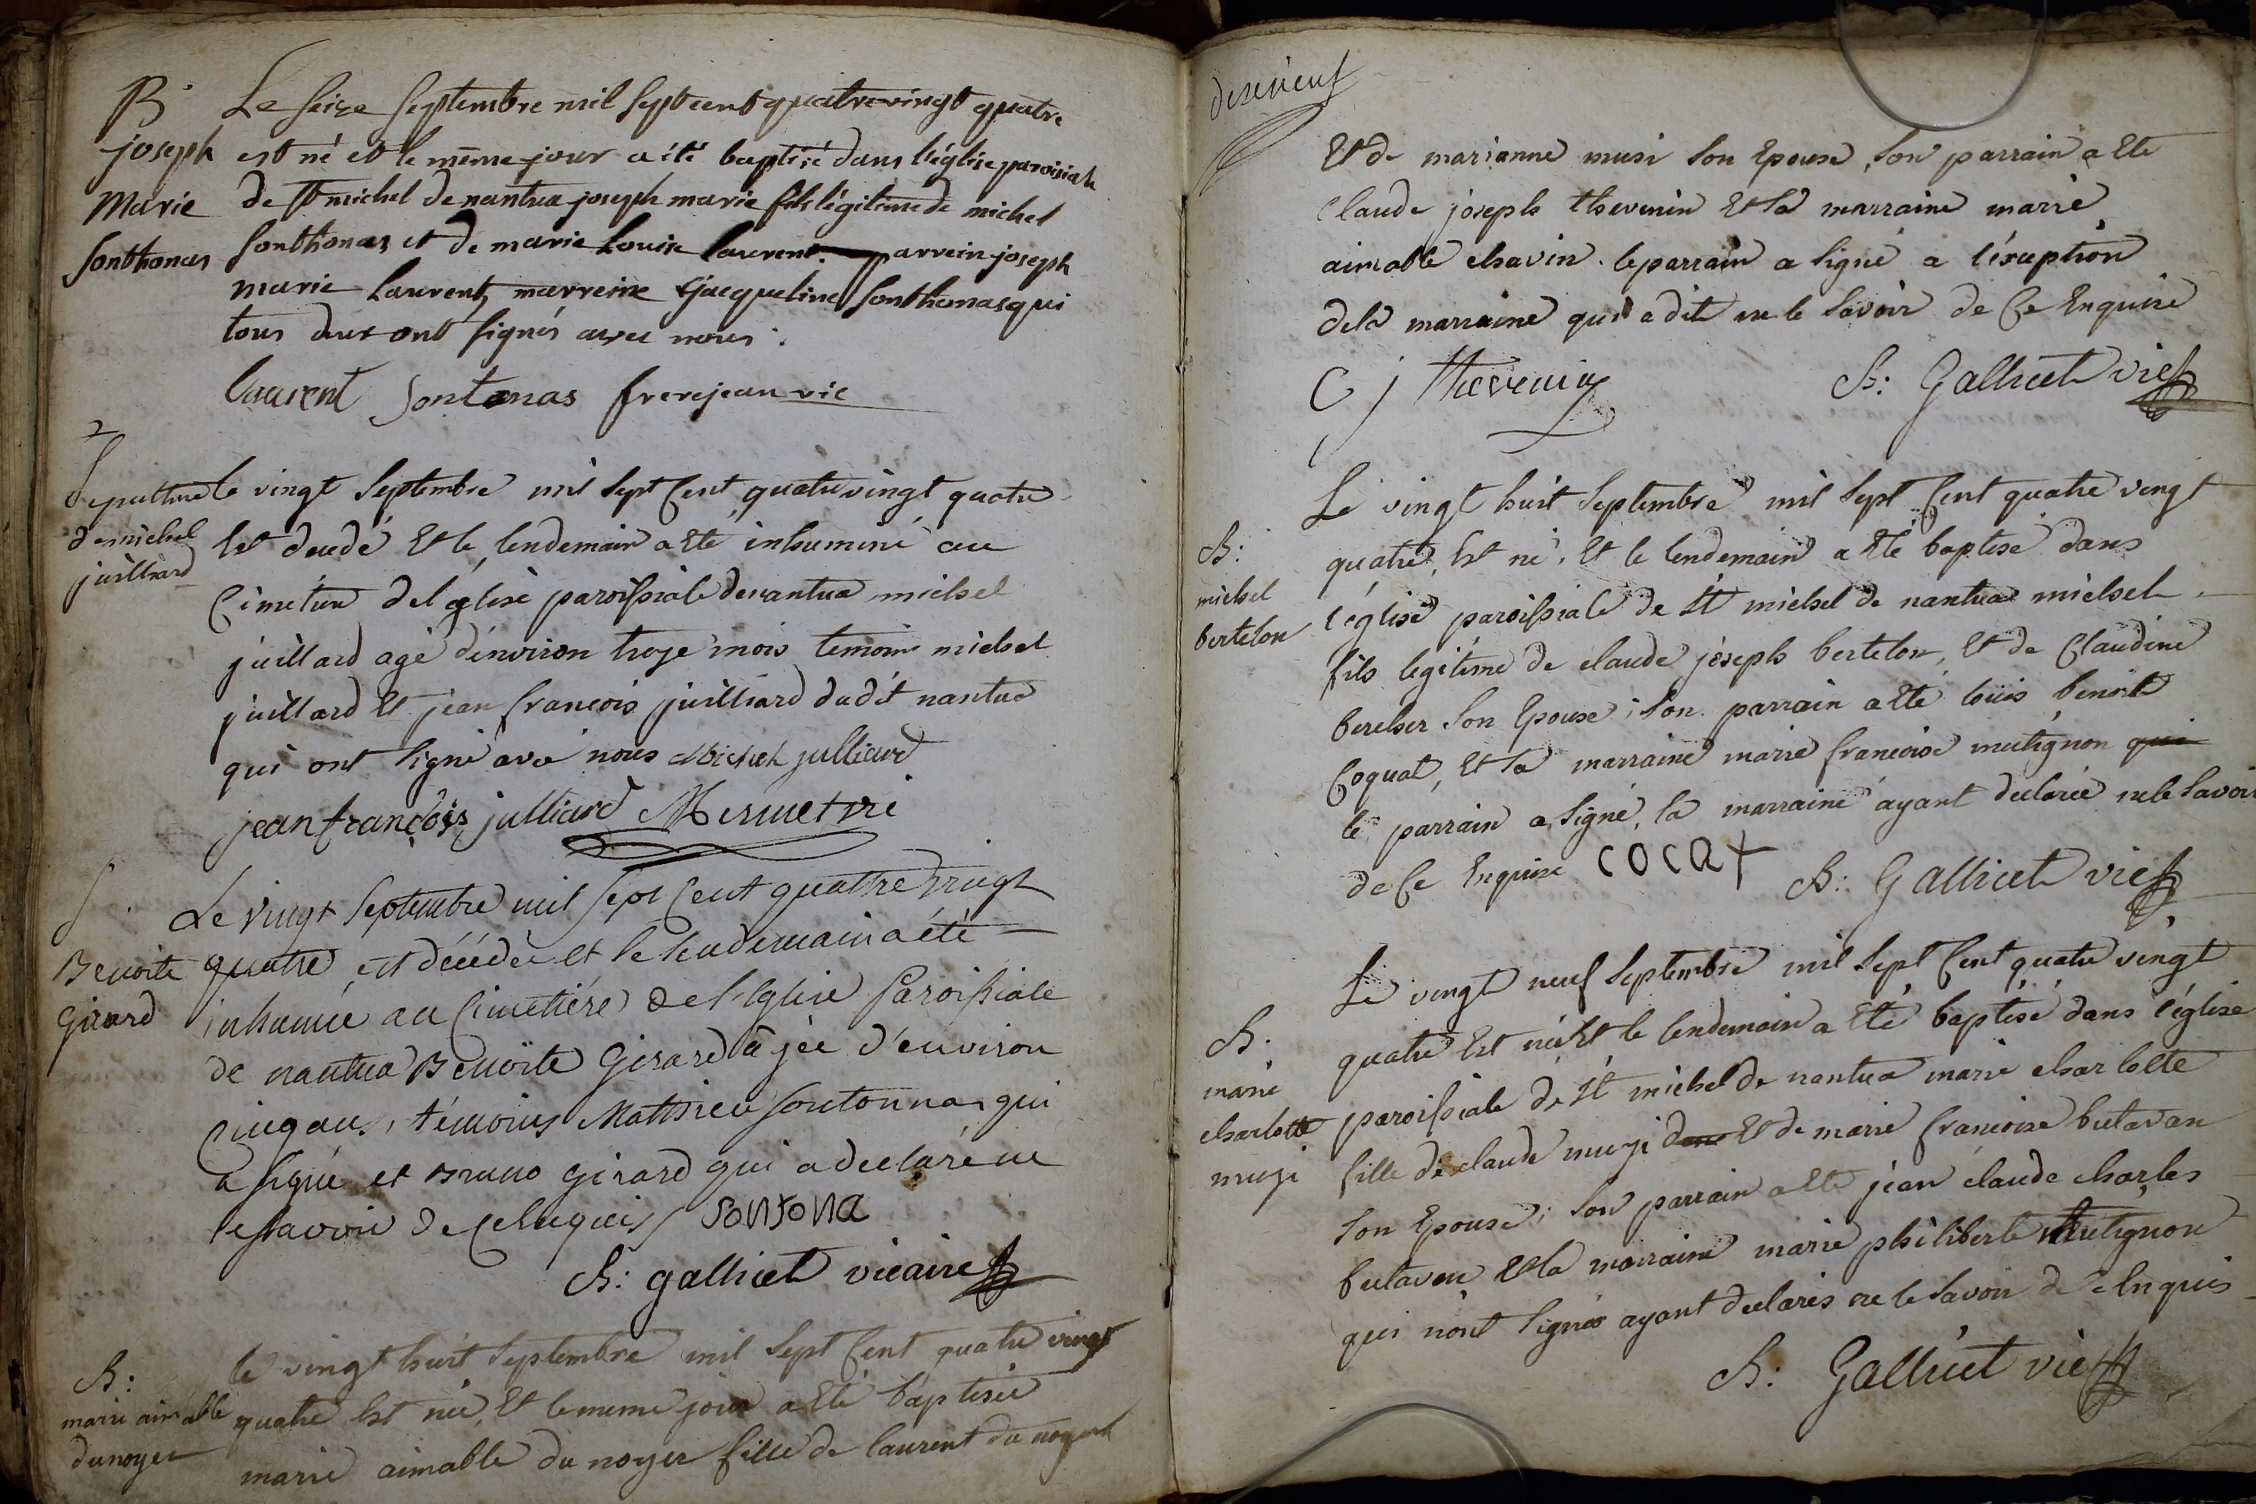 B.
joseph
Marie
Sonthonas
Le seize septembre mil sept cent quatre vingt quatre
est né et le même jour a été baptisé dans l'église paroisiale
de St michel de nantua joseph marie fils légitime de michel
Sonthonas et de marie Louise Laurent. parrein joseph
marie Laurent, marreine Jacqueline Sonthonas qui
tous deux ont signés avec nous.
laurent Sontonas frerejean vic
Sepulture
de michel
juilliard
le vingt Septembre mil Sept Cent quatre vingt quatre
Est decedé Et le lendemain a Eté inhuminé au
Cimetiere de l'église paroissiale de nantua michel
juillard agé d'environ treze mois temoins michel
juillard Et jean francois juilliard dudit nantua
qui ont signé avec nous Michel julliard
jean francois julliard Mermet vic
S.
Benoite
Girard
Le vingt Septembre mil Sept Cent quattre vingt
quatre, est décédée et le lendemain a été
inhumée au Cimetiére de l'Eglise Paroissiale
de nantua Benoite Girard âjée d'environ
Cinq ans, témoins Mathieu Sontonna qui
a signé et Bruno Girard qui a declaré ne
le savoir de ce enquis / Sontona
B: gallicet vicaire
B:
marie aimable
dunoyer
le vingt huit Septembre mil Sept Cent quatre vingt
quatre Est née, Et le meme jour a Eté baptisée
marie aimable du noyer fille de laurent du noyer
dixneuf
Et de marianne musi Son Epouse, Son parrain a Ete
Claude joseph thevenin Et la marraine marie
aimable chavin. le parrain a signé a l'éxception
dela marraine qui a dit ne le Savoir de Ce Enquise
C j Thevenin B: Gallicet vic
B:
michel
bertelon
Le vingt huit Septembre mil Sept Cent quatre vingt
quatre, Est né, Et le lendemain a Eté baptisé dans
l'église paroissiale de St michel de nantua michel
fils legitime de claude joseph bertelon, Et de Claudine
bercher Son Epouse; Son parrain a Eté loüis benoit
Coquat, Et la marraine marie francoise mutignon qui
le parrain a signé, la marraine ayant declarée ne le Savoir
de Ce Enquise cocat B: Gallicet vic
B.
marie
charlotte
muzi
Le vingt neuf Septembre mil Sept Cent quatre vingt
quatre Est née Et le lendemain a Eté baptisé dans l'église
paroissiale de St michel de nantua marie charlotte
fille de claude muzi dune Et de marie francoise butavan
Son Epouse; Son parrain a Eté jean claude charles
butavan Et la marraine marie philiberte mutignon
qui n'ont signés ayant declarés ne le Savoir de Ce Enquis
B: Gallicet vic